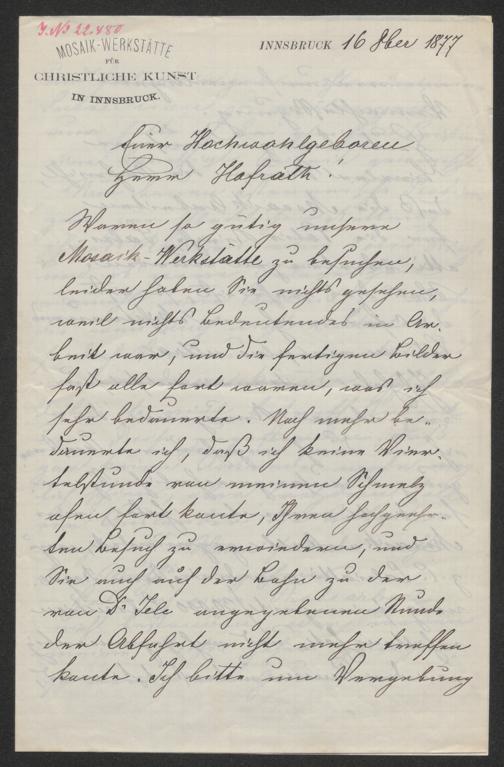 J.№ 22.480
MOSAIK-WERKSTÄTTE
FÜR
CHRISTLICHE KUNST
IN INNSBRUCK.
INNSBRUCK 16 8ber 1877
Euer Hochwohlgeboren
Herr Hofrath!
Waren so gütig unsere
Mosaik-Werkstätte zu besuchen,
leider haben Sie nichts gesehen,
weil nichts bedeutendes in Ar-
beit war, und die fertigen Bilder
fast alle fort waren, was ich
sehr bedauerte. Noch mehr be-
dauerte ich, daß ich keine Vier-
telstunde von meinem Schmelz
ofen fort konte, Ihren hochgeehr-
ten Besuch zu erwiedern, und
Sie auch auf der Bahn zu der
von Dr Jele angegebenen Stunde
der Abfahrt nicht mehr treffen
konte. Ich bitte um Vergebung